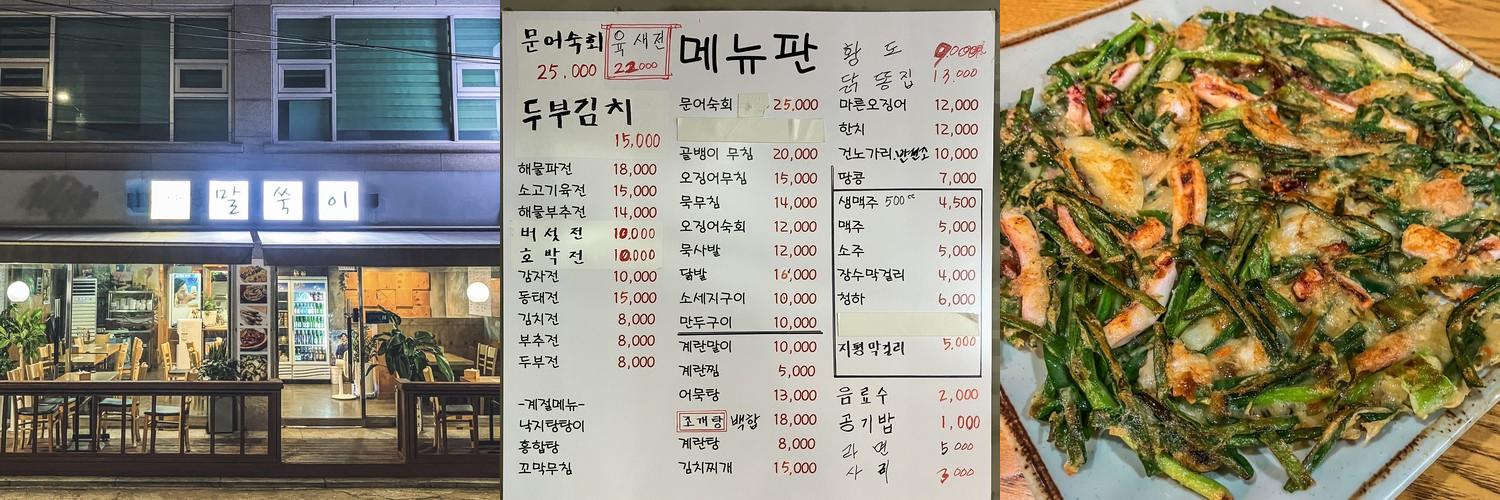 말쑥이
문어숙회 25,000
육새전 22000
두부김치
15,000
해물파전 18,000
소고기육전 15,000
해물부추전 14,000
버섯전 10,000
호박전 10,000
감자전 10,000
동태전 15,000
김치전 8,000
부추전 8,000
두부전 8,000
-계절메뉴-
낙지탕탕이
홍합탕
꼬막무침
메뉴판
문어숙회 25,000
골뱅이 무침 20,000
오징어무침 15,000
묵무침 14,000
오징어숙회 12,000
묵사발 12,000
닭발 16,000
소세지구이 10,000
만두구이 10,000
계란말이 10,000
계란찜 5,000
어묵탕 13,000
조개탕 백합 18,000
계란탕 8,000
김치찌개 15,000
황도
닭똥집 13.000
마른오징어 12,000
한치 12,000
건노가리, 10,000
땅콩 7,000
생맥주 500cc 4,500
맥주 5,000
소주 5,000
장수막걸리 4,000
청하 6,000
지평막걸리 5.000
음료수 2,000
공기밥 1,000
라면 5000
사리 3000